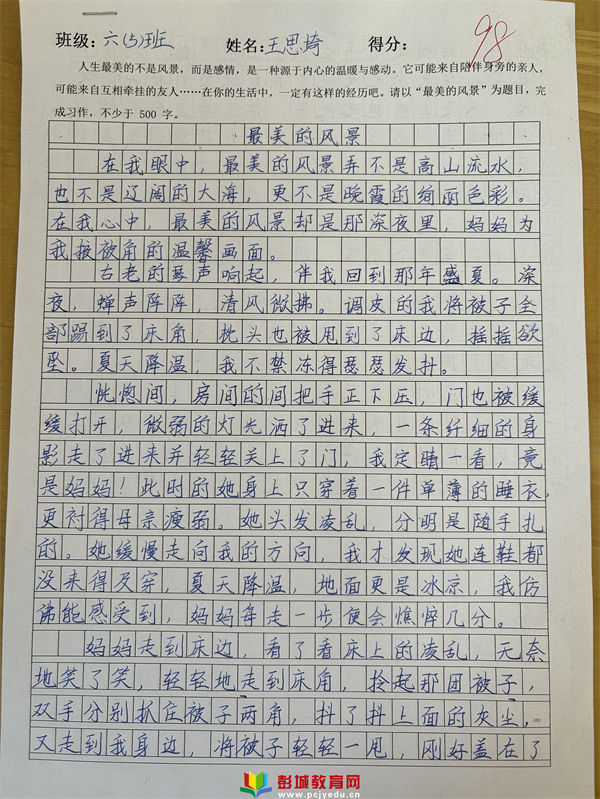 班级：六(5)班 姓名：王思埼 得分： 98
人生最美的不是风景，而是感情，是一种源于内心的温暖与感动。它可能来自陪伴身旁的亲人，
可能来自互相牵挂的友人……在你的生活中，一定有这样的经历吧。请以“最美的风景”为题目，完
成习作，不少于 500 字。
最美的风景
在我眼中，最美的风景并不是高山流水，
也不是辽阔的大海，更不是晚霞的绚丽色彩。
在我心中，最美的风景却是那深夜里，妈妈为
我掖被角的温馨画面。
古老的琴声响起，伴我回到那年盛夏。深
夜，蝉声阵阵，清风微拂。调皮的我将被子全
部踢到了床角，枕头也被甩到了床边，摇摇欲
坠。夏天降温，我不禁冻得瑟瑟发抖。
恍惚间，房间的间把手正下压，门也被缓
缓打开，微弱的灯光洒了进来，一条纤细的身
影走了进来并轻轻关上了门，我定睛一看，竟
是妈妈！此时的她身上只穿着一件单薄的睡衣，
更衬得母亲瘦弱。她头发凌乱，分明是随手扎
的。她缓慢走向我的方向，我才发现她连鞋都
没来得及穿，夏天降温，地面更是冰凉，我仿
佛能感受到，妈妈每走一步便会憔悴几分。
妈妈走到床边，看了看床上的凌乱，无奈
地笑了笑，轻轻地走到床角，拎起那团被子，
双手分别抓住被子两角，抖了抖上面的灰尘，
又走到我身边，将被子轻轻一甩，刚好盖在了
彭城教育网
www.pcjyedu.cn